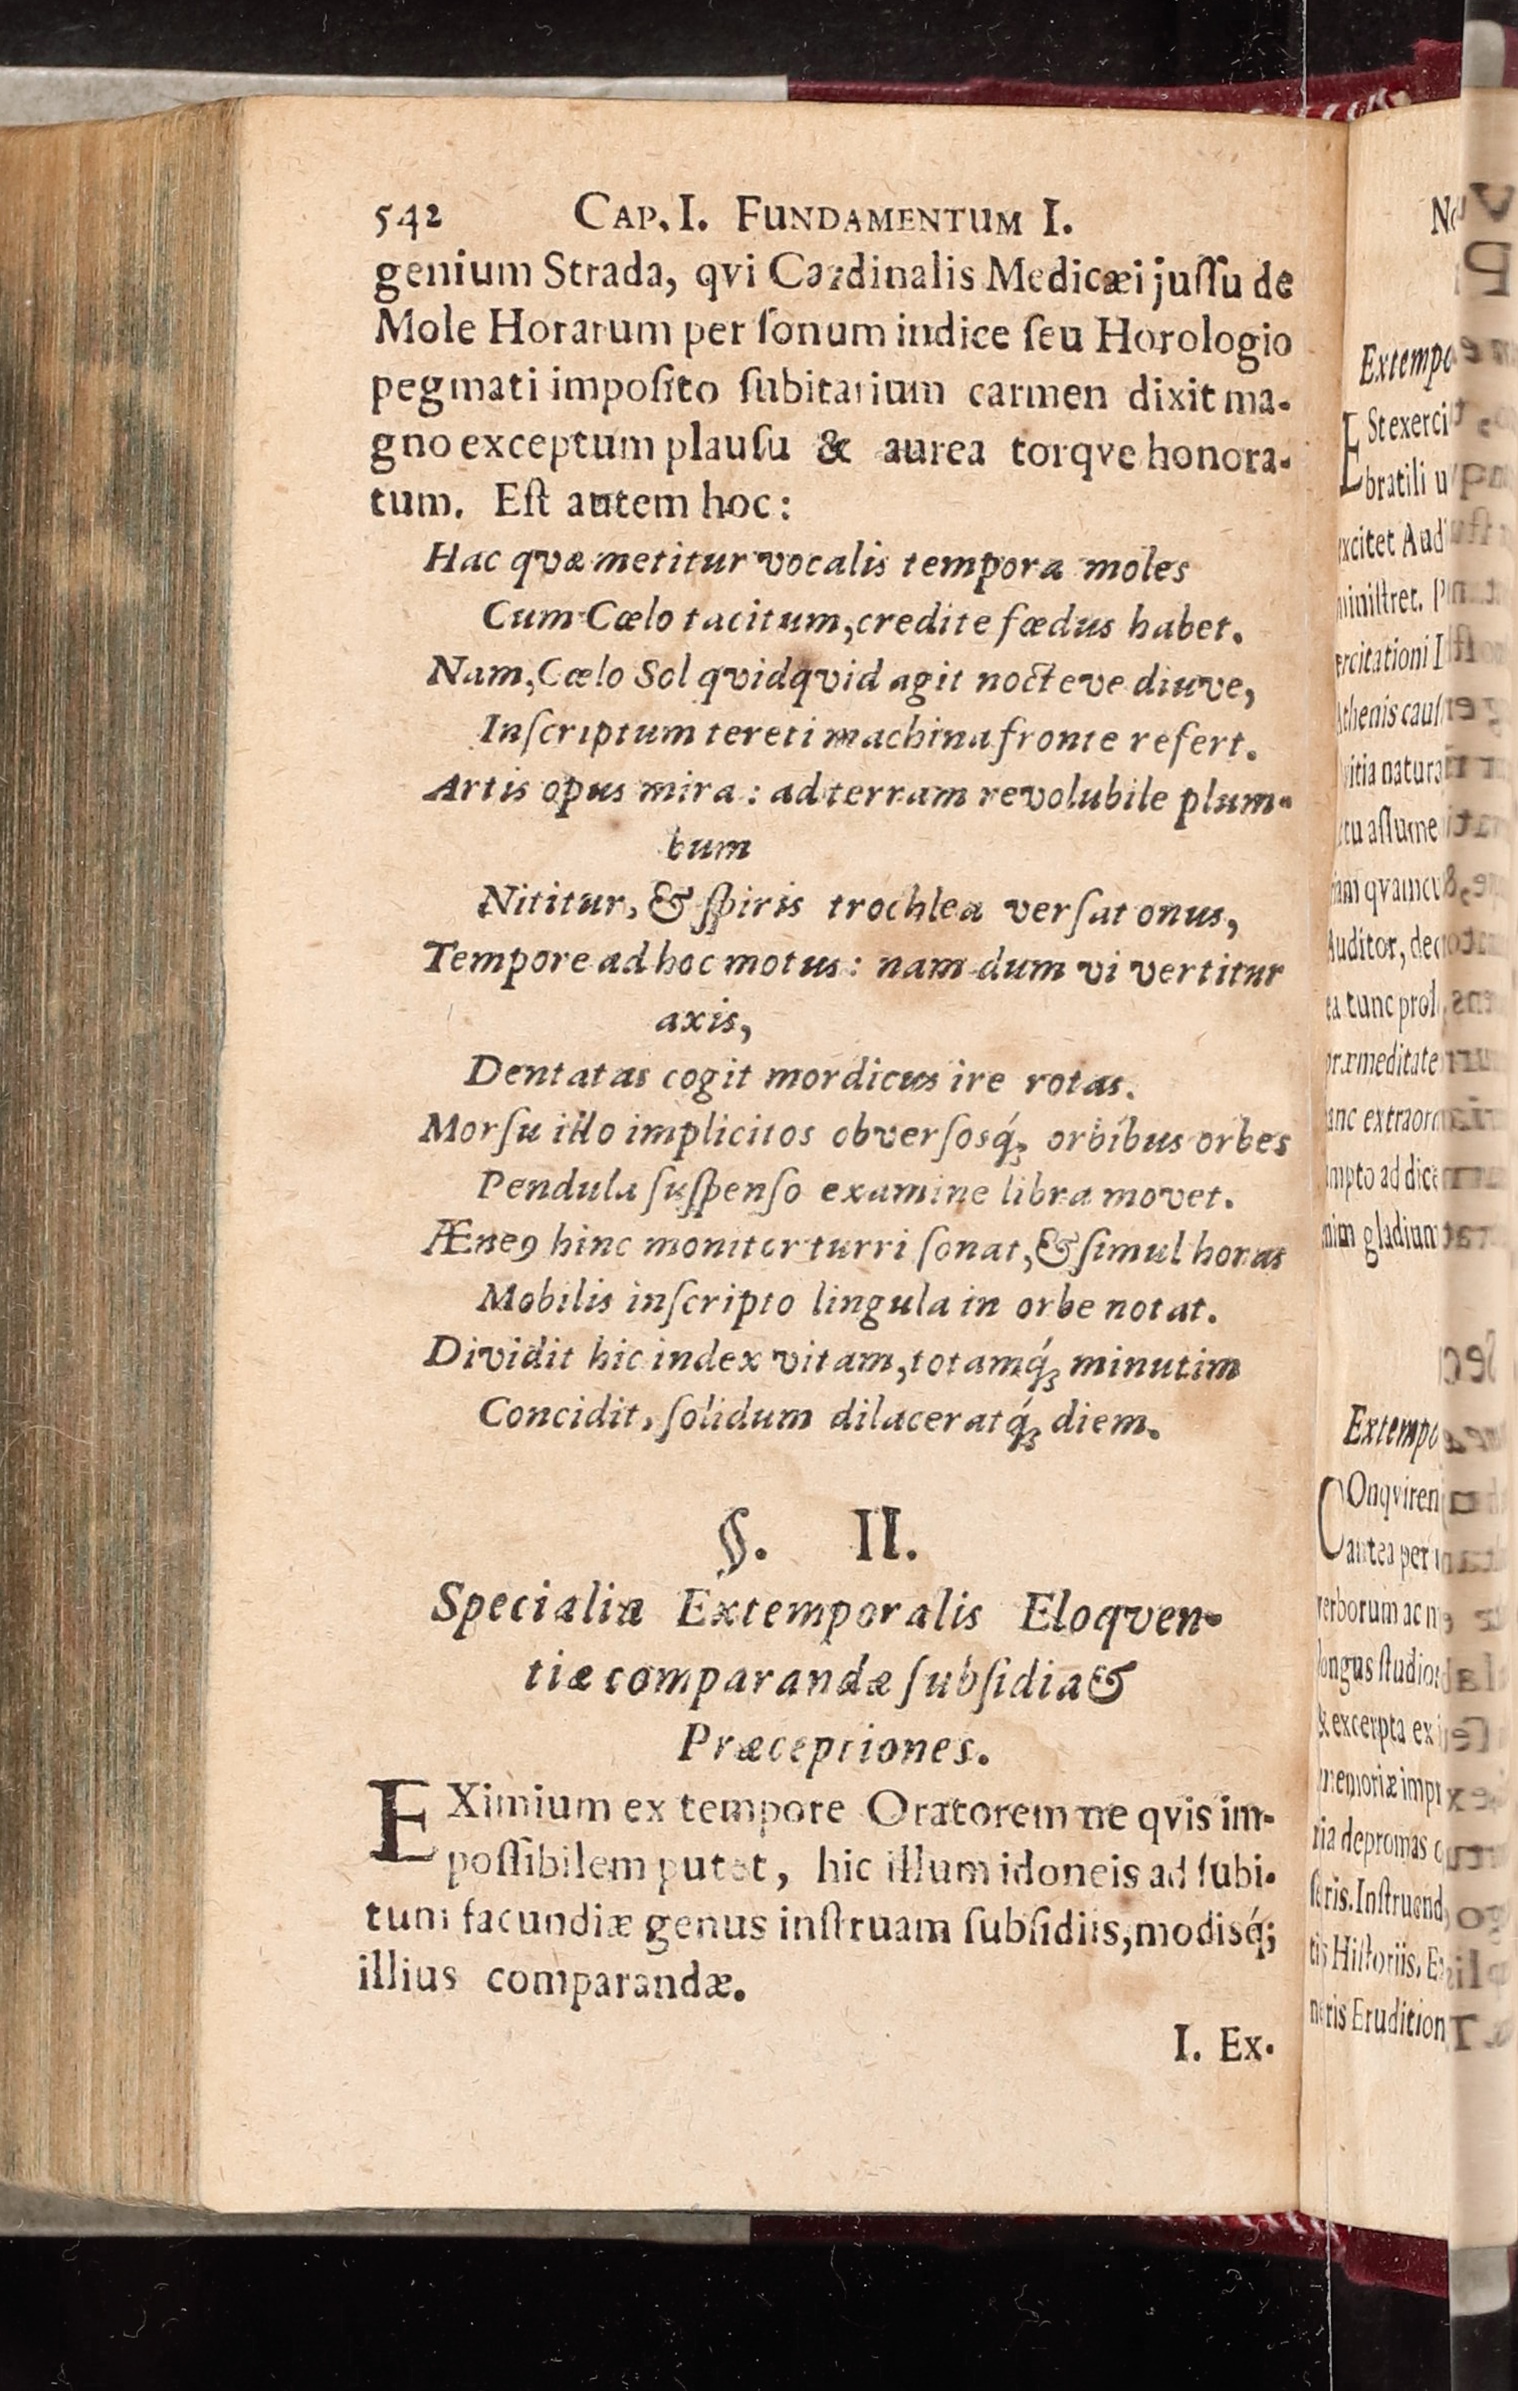 542 CAP. I. FUNDAMENTUM I.
genium Strada, qvi Cardinalis Medicæi juſſu de
Mole Horarum per ſonum indice ſeu Horologio
pegmati impoſito ſubitarium carmen dixit ma-
gno exceptum plauſu & aurea torqve honora-
tum. Eſt autem hoc:
Hac qvæ metitur vocalis tempora moles
Cum Cœlo tacitum, credite fœdus habet.
Nam, Cœlo Sol qvidqvid agit nocteve diuve,
Inſcriptum tereti machina fronte refert.
Artis opus mira: ad terram revolubile plum-
bum
Nititur, & ſpiris trochlea verſat onus,
Tempore ad hoc motus: nam dum vi vertitur
axis,
Dentatas cogit mordicus ire rotas.
Morſu illo implicitos obverſosq́; orbibus orbes
Pendula ſuſpenſo examine libra movet.
Æneꝰ hinc monitor turri ſonat, & ſimul horas
Mobilis inſcripto lingula in orbe notat.
Dividit hic index vitam, totamq́; minutim
Concidit, ſolidum dilaceratq́; diem.
§. II.
Specialia Extemporalis Eloqven-
tiæ comparandæ ſubſidia &
Præceptiones.
EXimium ex tempore Oratorem ne qvis im-
poſſibilem putet, hic illum idoneis ad ſubi-
tum facundiæ genus inſtruam ſubſidiis, modisq́;
illius comparandæ.
I. Ex-
Extempo
Stexerci
bratili u
xcitet Aud
miniſtret. P
ercitationi I
Athenis cauſ
vitia natura
tu aſſume
iam qvamcu
Auditor, dec
ea tunc prol
præmeditate
anc extraord
mpto ad dice
nim gladium
Extempo
COnqviren
antea per
verborum ac n
longus ſtudio
& excerpta ex
memoriæ impr
ria depromas
ſeris. Inſtruend
tis Hiſtoriis. E
neris Erudition